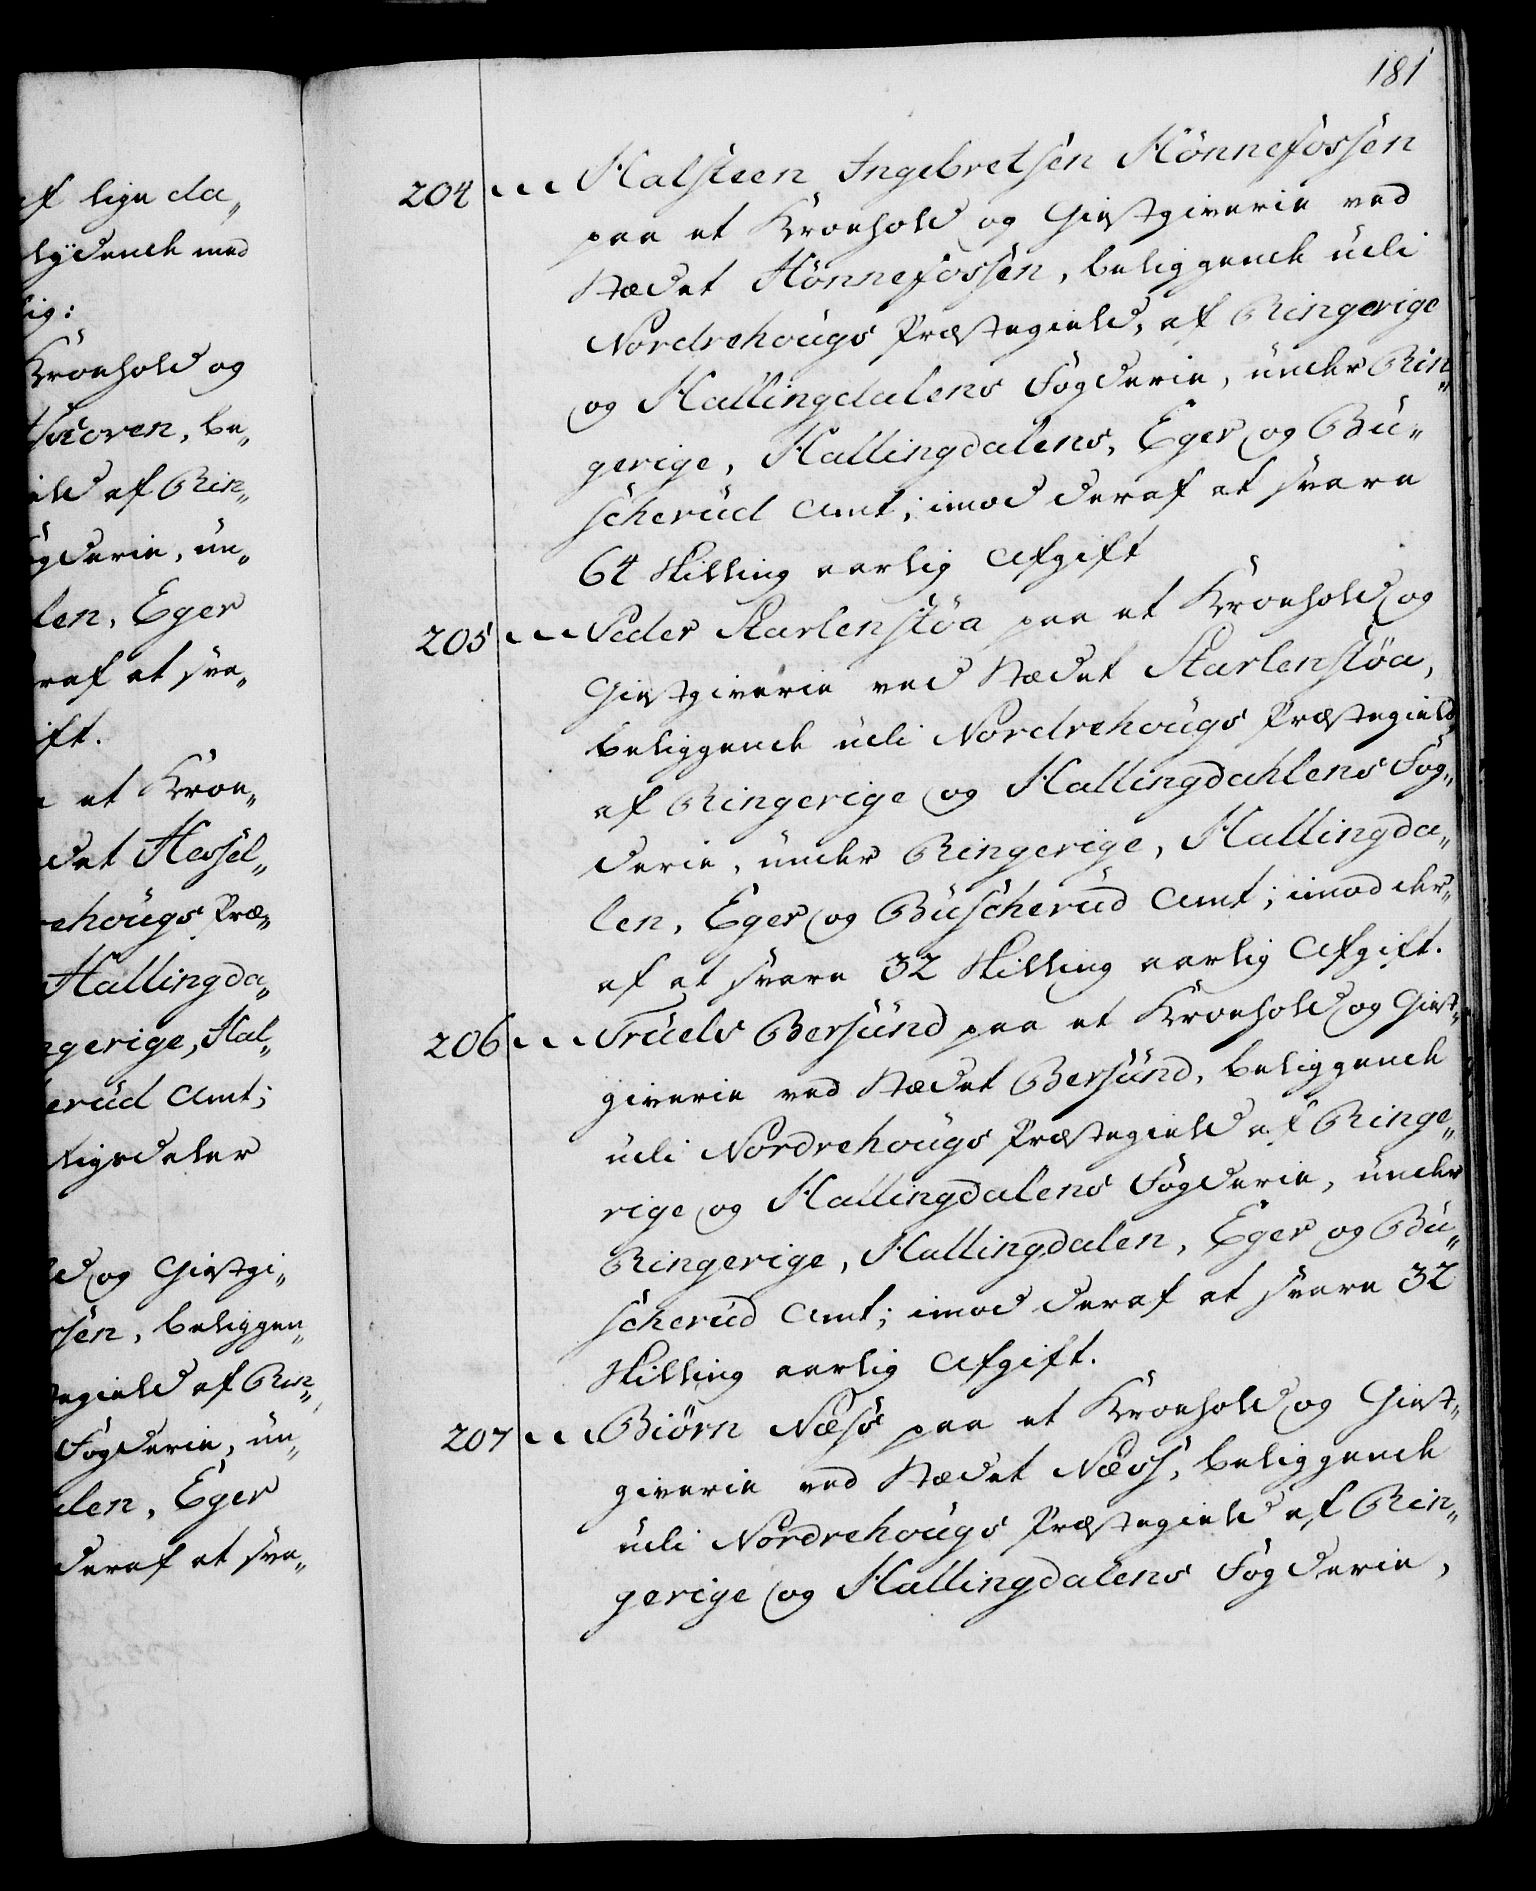 181
af lige da„
lÿdende med
lig:
Kroehold og
be„
ield af Rin„
ogderie, un„
len, Eger
raf at sva„
ift.
et Kroe„
det Hessel„
rehougs Præ„
Hallingda„
ngerige, Hal„
erud Amt;
Rigsdaler
ld og Giestgi„
sen, beliggen„
tegield af Rin„
Fogderie, un„
alen, Eger
deraf at sva„
204 Halsteen Ingebretsen Hönnefossen
paa et Kroehold og Giestgiverie ved
Stædet Hönnefossen, beliggende udi
Nordrehougs Præstegield, af Ringerige
og Hallingdalens Fogderie, under Rin„
gerige, Hallingdalens, Eger og Bu„
scherud Amt; imod deraf at svare
64 Skilling aarlig Afgift
205 Peder Karlenstöa paa et Kroehold og
Giestgiverie ved Stædet Karlenstöa,
beliggende udi Nordrehougs Præstegield
af Ringerige og Hallingdahlens Fog„
derie, under Ringerige, Hallingda„
len, Eger og Buscherud Amt; imod der„
af at svare 32 Skilling aarlig Afgift.
206 Truels Bersund paa et Kroehold og Giest„
giverie ved Stædet Bersund, beliggende
udi Nordrehougs Præstegield af Ringe„
rige og Hallingdalens Fogderie, under
Ringerige, Hallingdalen, Eger og Bu„
scherud Amt; imod deraf at svare 32
Skilling aarlig Afgift.
207 Biörn Næss paa et Kroehold og Giest„
giverie ved Stædet Næss, beliggende
udi Nordrehougs Præstegield af Rin„
gerige og Hallingdalens Fogderie,